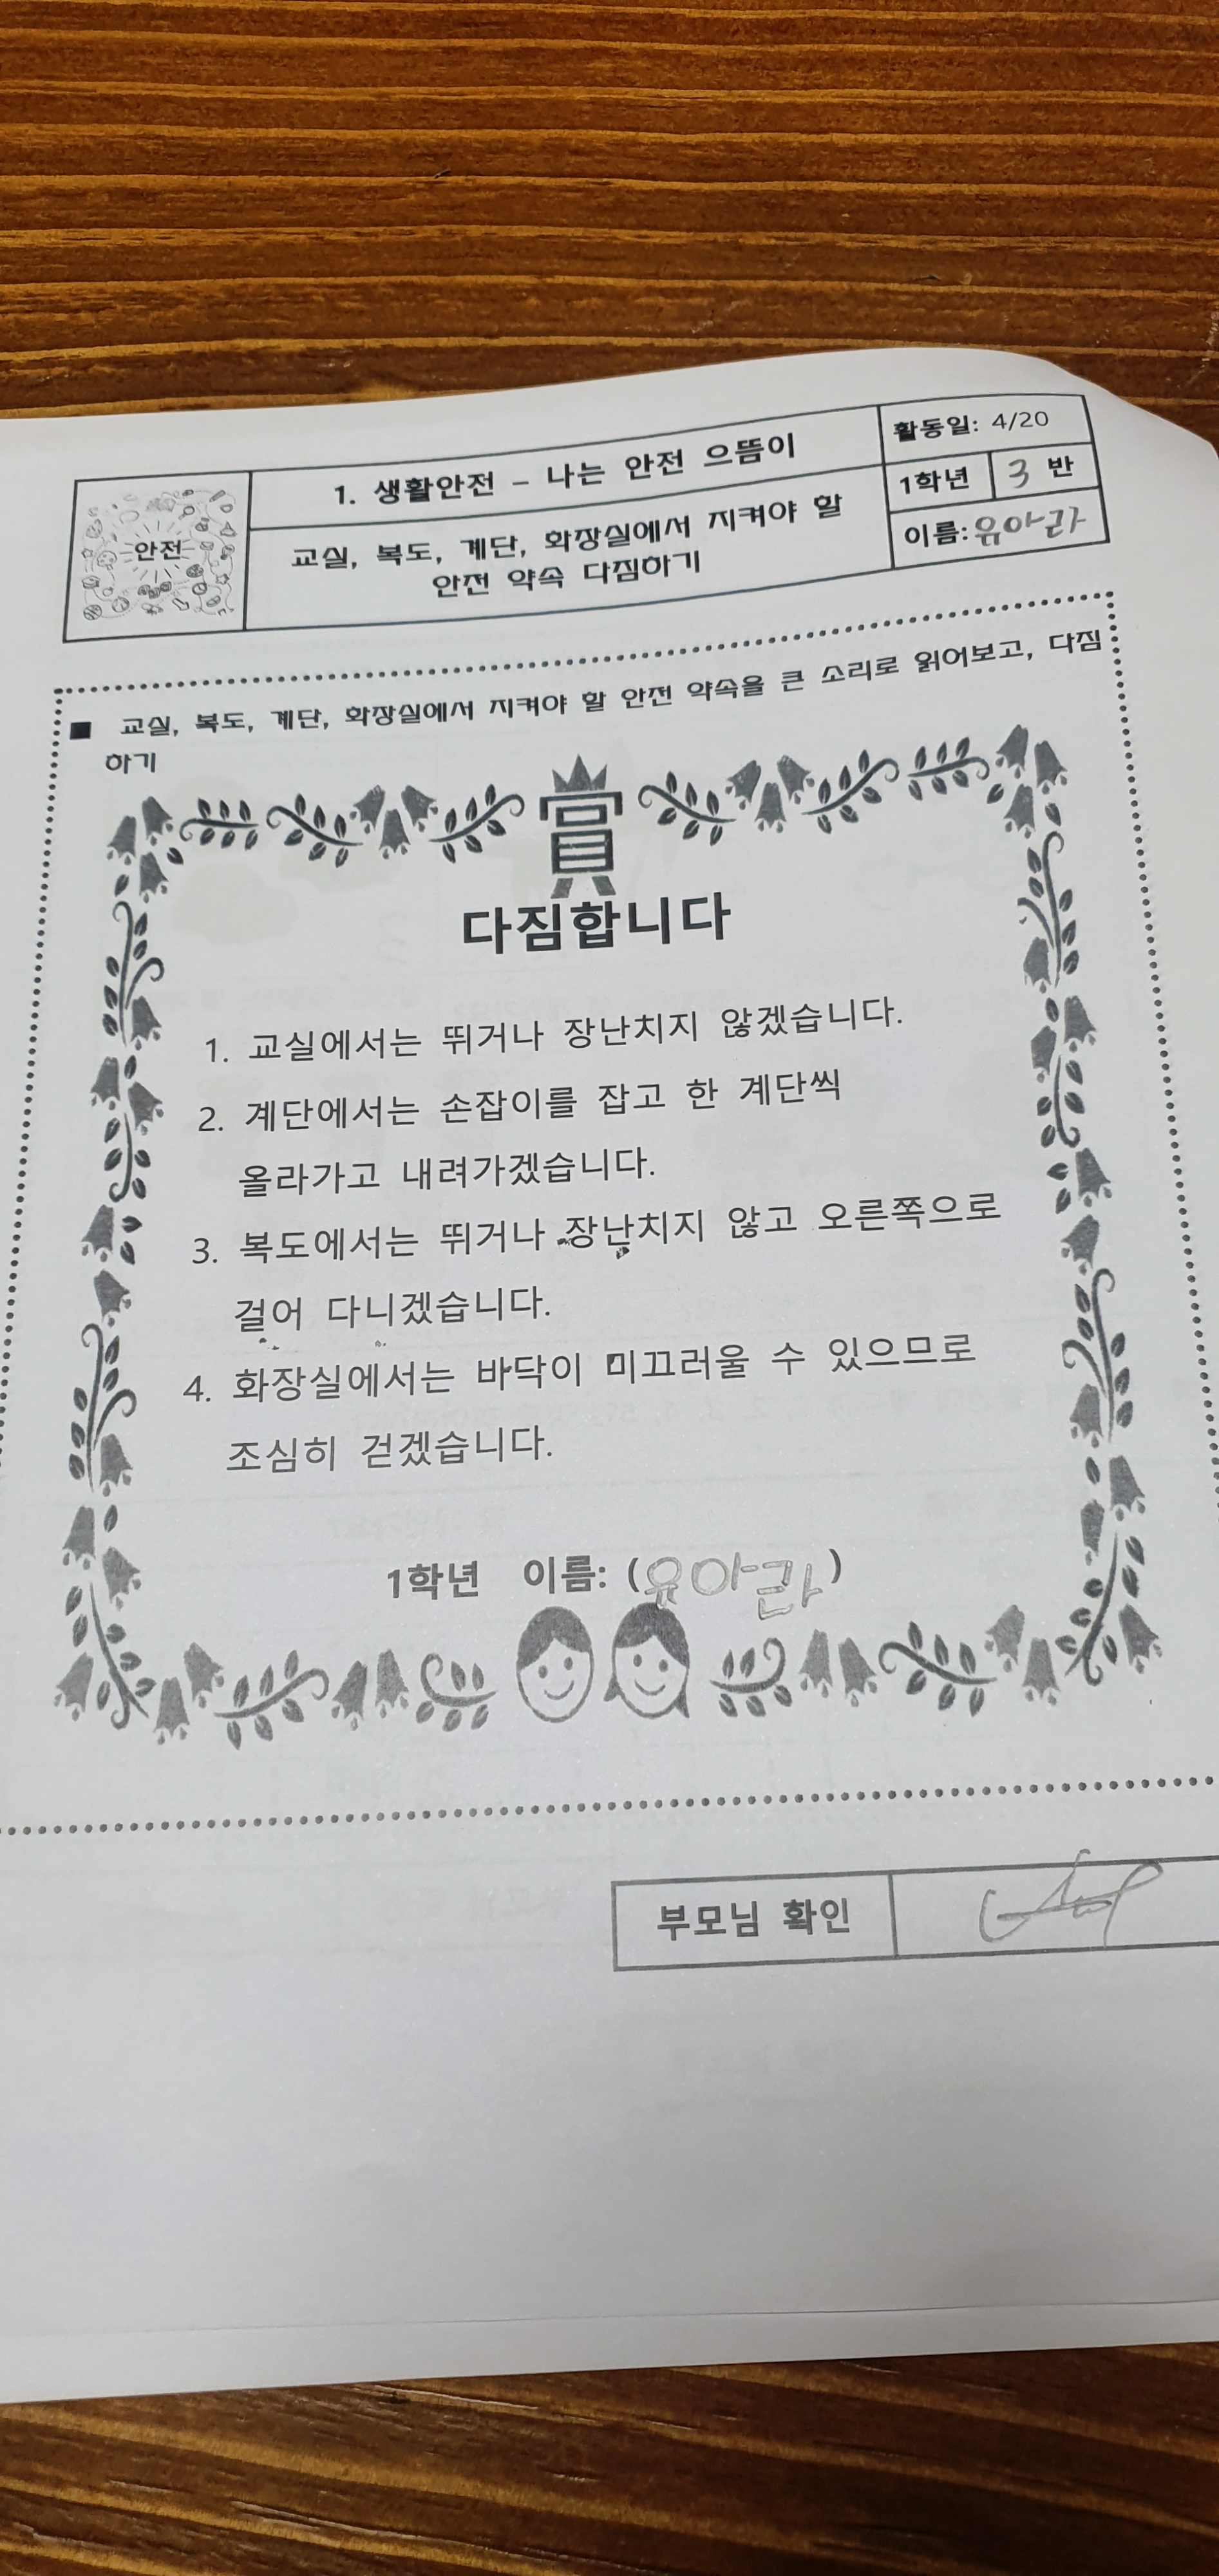 안전
1. 생활안전 – 나는 안전 으뜸이
교실, 복도, 계단, 화장실에서 지켜야 할
안전 약속 다짐하기
활동일: 4/20
1학년 3 반
이름: 유아라
■ 교실, 복도, 계단, 화장실에서 지켜야 할 안전 약속을 큰 소리로 읽어보고, 다짐
하기
賞
다짐합니다
1. 교실에서는 뛰거나 장난치지 않겠습니다.
2. 계단에서는 손잡이를 잡고 한 계단씩
올라가고 내려가겠습니다.
3. 복도에서는 뛰거나 장난치지 않고 오른쪽으로
걸어 다니겠습니다.
4. 화장실에서는 바닥이 미끄러울 수 있으므로
조심히 걷겠습니다.
1학년 이름: (유아라)
부모님 확인